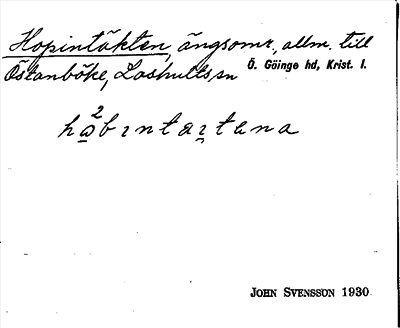 Hopintäkten, ängsomr., allm. till
Östanböke, Loshults sn Ö. Göinge hd, Krist. l.
JOHN SVENSSON 1930